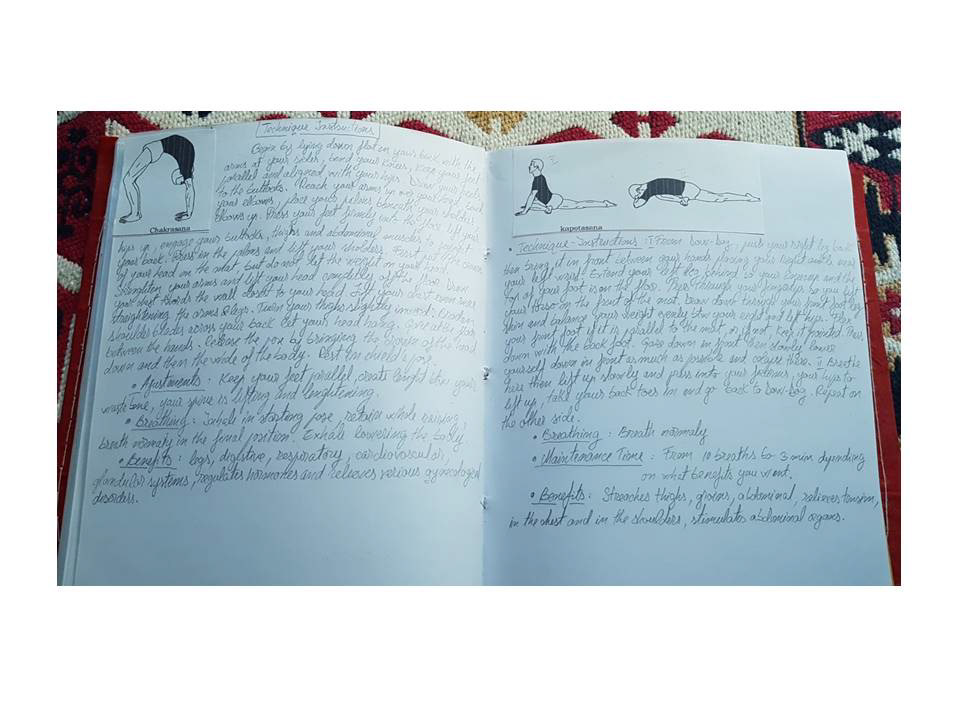 Technique Instructions
Begin by lying down flat on your back with the
arms at your sides, bend your knees, keep your feet
parallel and aligned with your hips. Draw your heels
to the buttocks. Reach your arms up over your head, bend
your elbows, place your palms beneath your sholders
elbows up. Press your feet firmly into the floor, lift your
Chakrasana
hips up, engage your buttocks, thighs and abdominal muscles to protect
your back. Press in the palms and lift your sholders. First put the crown
of your head on the mat, but do not let the weight on your head.
Straighten your arms and lift your head completly off the floor. Draw
your chest towards the wall closest to your head. Lift your chest even more
straightening the arms & legs. Turn your thighs slightly inward. Broaden
shoulder blades across your back let your head hang. Gaze at the floor
between the hands. Release the pose by bringing the crown of the head
down and then the whole of the body. Rest in child's pose.
• Ajustments : Keep your feet parallel, create lenght btw your
waste bone, your spine is lifting and lengthening.
• Breathing : Inhale in starting pose, retain whole raising,
breath normaly in the final position. Exhale lowering the body.
• Benefits : legs, digestive, respiratory, cardiovascular,
glandular systems, regulates hormones and relieves various gynecological
disorders.
kapotasana
• Technique-Instructions : I From down-dog, push your right leg back
then bring it in front between your hands placing your right ankle near
your left wrist. Extend your left leg behind so your kneecap and the
top of your foot is on the floor. Press through your fingertips so you lift
your torso on the front of the mat. Draw down through your front foot leg
shin and balance your weight evenly btw your right and left hips. Flex
your front foot if it is parallel to the mat or if not keep it pointed. Press
down with the back foot. Gaze down in front then slowly lower
yourself down in front as much as possible and calyse there. II Breathe
here then lift up slowly and press into your palms, your hips to
lift up, take your back toes in and go back to down-dog. Repeat on
the other side.
• Breathing : Breath normaly
• Maintenance Time : From 10 breaths to 3 min depending
on what benefits you want.
• Benefits : Streaches thighs, groins, abdominal, relieves tension,
in the chest and in the shoulders, stimulates abdominal organs.